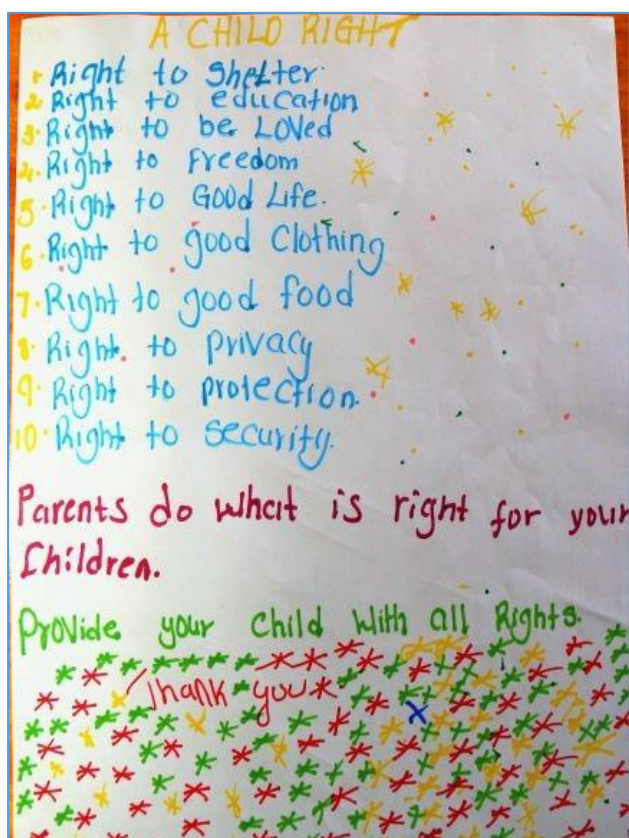 A CHILD RIGHT
1. Right to Shelter.
2. Right to education
3. Right to be Loved
4. Right to Freedom
5. Right to Good Life.
6. Right to good Clothing
7. Right to good food
8. Right to privacy
9. Right to protection.
10. Right to security.
Parents do what is right for your
Children.
Provide your child with all Rights.
Thank you